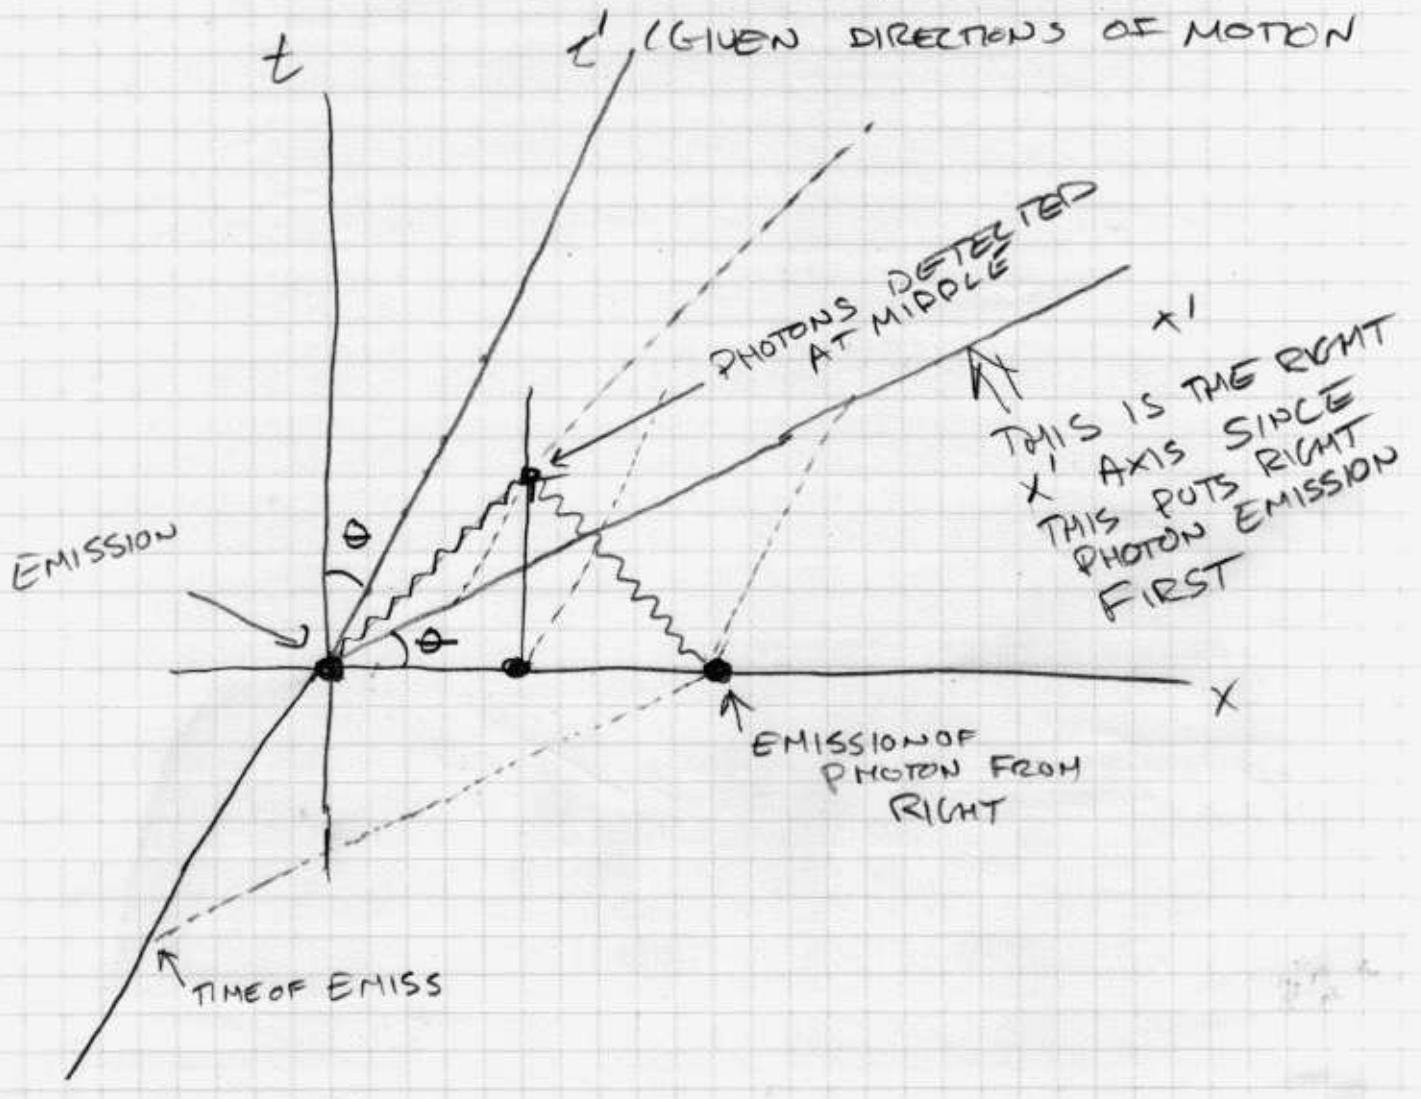 t
t' (GIVEN DIRECTIONS OF MOTION
PHOTONS DETECTED
AT MIDDLE
x'
THIS IS THE RIGHT
x' AXIS SINCE
THIS PUTS RIGHT
PHOTON EMISSION
FIRST
EMISSION
θ
θ
x
EMISSION OF
PHOTON FROM
RIGHT
TIME OF EMISS